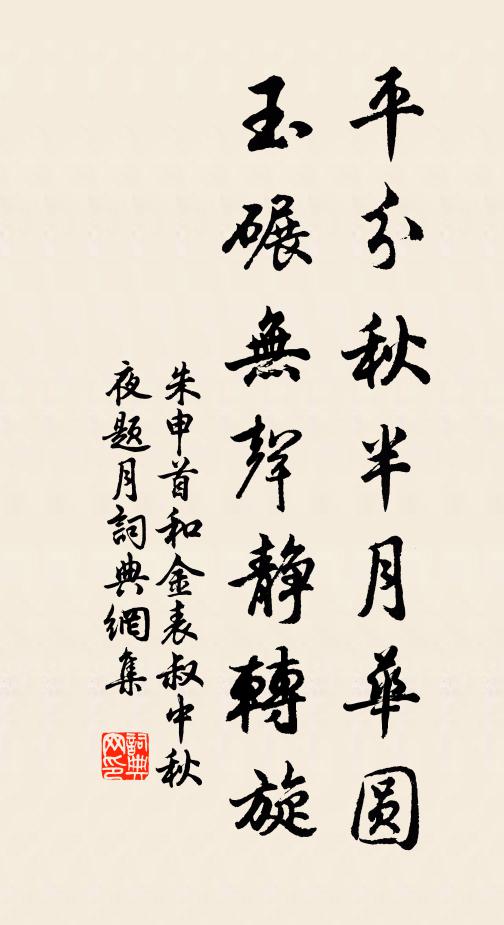 平分秋半月華圓
玉碾無聲靜轉旋
朱申首和金表叔中秋
夜题月詞典網集
詞典網印